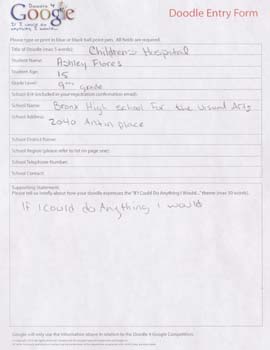 Doodle 4
Google
If I could do
anything I would...
Doodle Entry Form
Please type or print in blue or black ball point pen. All fields are required.
Title of Doodle (max 5 words): Children's Hospital
Student Name: Ashley Flores
Student Age: 15
Grade Level: 9th grade
School ID# (included in your registration confirmation email):
School Name: Bronx High School For the Visual Arts
School Address: 2040 Antin place
School District Name:
School Region (please refer to list on page one):
School Telephone Number:
School Contact:
Supporting Statement:
Please tell us briefly about how your doodle expresses the "If I Could Do Anything I Would..." theme (max 50 words).
If I could do Anything I would
Google will only use the information above in relation to the Doodle 4 Google Competition.